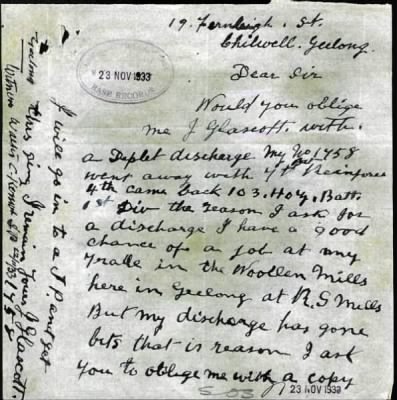 19. Fernleigh. St.
Chilwell. Geelong.
23 NOV 1933
BASE RECORDS
Dear Sir
Would you oblige
me J Glascott. with.
a Duplet discharge My No 1758
went away with 4th Reinforce
4th came back 103. How. Batt.
1st Div the reason I ask for
a discharge I have a good
chance of a job at my
Trade in the Woollen Mills
here in Geelong at R.S Mills
But my discharge has gone
bits that is reason I ask
you to oblige me with a copy
23 NOV 1933
I will go in to a J.P. and get
this sig I remain yours J Glascott.
1758
Witness